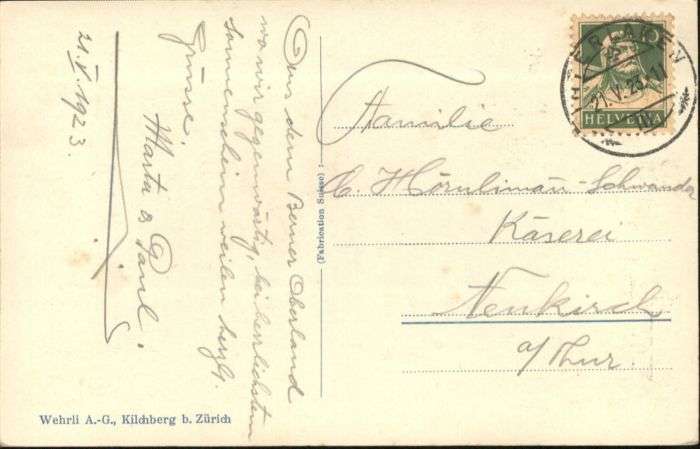 Aus dem Berner Oberland
wo wir gegenwärtig, bei herrlichstem
Sonnenschein weilen herzl.
Grüsse.
Marta & Paul.
21.V.1923.
(Fabrication Suisse)
Wehrli A.-G., Kilchberg b. Zürich
INTERLAKEN
21.V.23
10
HELVETIA
Familie
Hörnlimann-Schwander
Käserei
Neukirch
a/Thur.